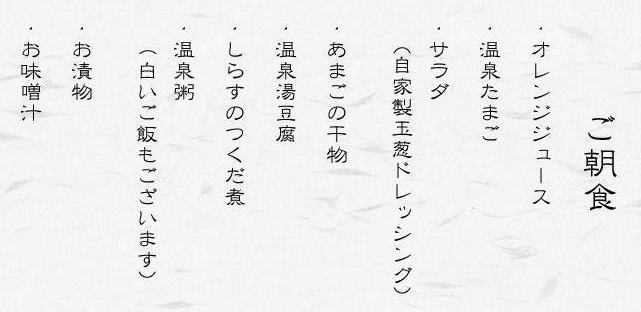 ご朝食
・オレンジジュース
・温泉たまご
・サラダ
（自家製玉葱ドレッシング）
・あまごの干物
・温泉湯豆腐
・しらすのつくだ煮
・温泉粥
（白いご飯もございます）
・お漬物
・お味噌汁